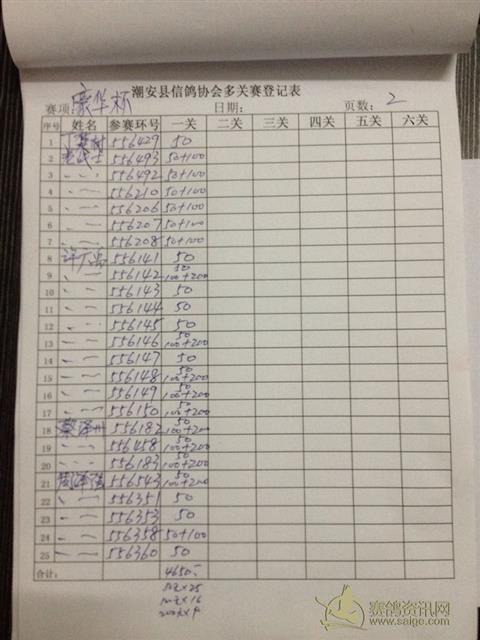 潮安县信鸽协会多关赛登记表
赛项: 豪华杯 日期: 页数: 2
序号 姓名 参赛环号 一关 二关 三关 四关 五关 六关
1 556429 50
2 556493 50+100
3 〃 556492 50+100
4 〃 556210 50+100
5 〃 556206 50+100
6 〃 556207 50+100
7 〃 556208 50+100
8 556141 50
9 〃 556142 50 100+200
10 〃 556143 50
11 〃 556144 50
12 〃 556145 50
13 〃 556146 50 100+200
14 〃 556147 50
15 〃 556148 50 100+200
16 〃 556149 50 100+200
17 〃 556150 50 100+200
18 556182 50 100+200
19 〃 556458 50 100+200
20 〃 556183 50 100+200
21 556543 50 100+200
22 〃 556351 50
23 〃 556353 50
24 〃 556358 50+100
25 〃 556360 50
合计: 4650
50元×25
100元×16
200元×9
赛鸽资讯网
www.saige.com